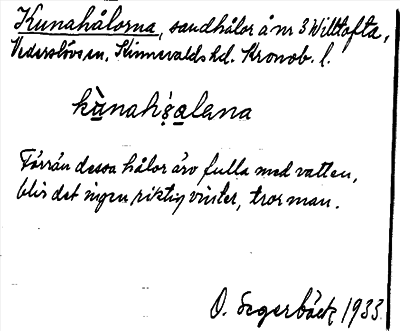 Kunahålorna, sandhålor å nr 3 Willtofta,
Vederslövs sn, Kinnevalds hd. Kronob. l.
kùnahɞ̀alena
Förrän dessa hålor äro fulla med vatten,
blir det ingen riktig vinter, tror man.
O. Segerbäck 1933.